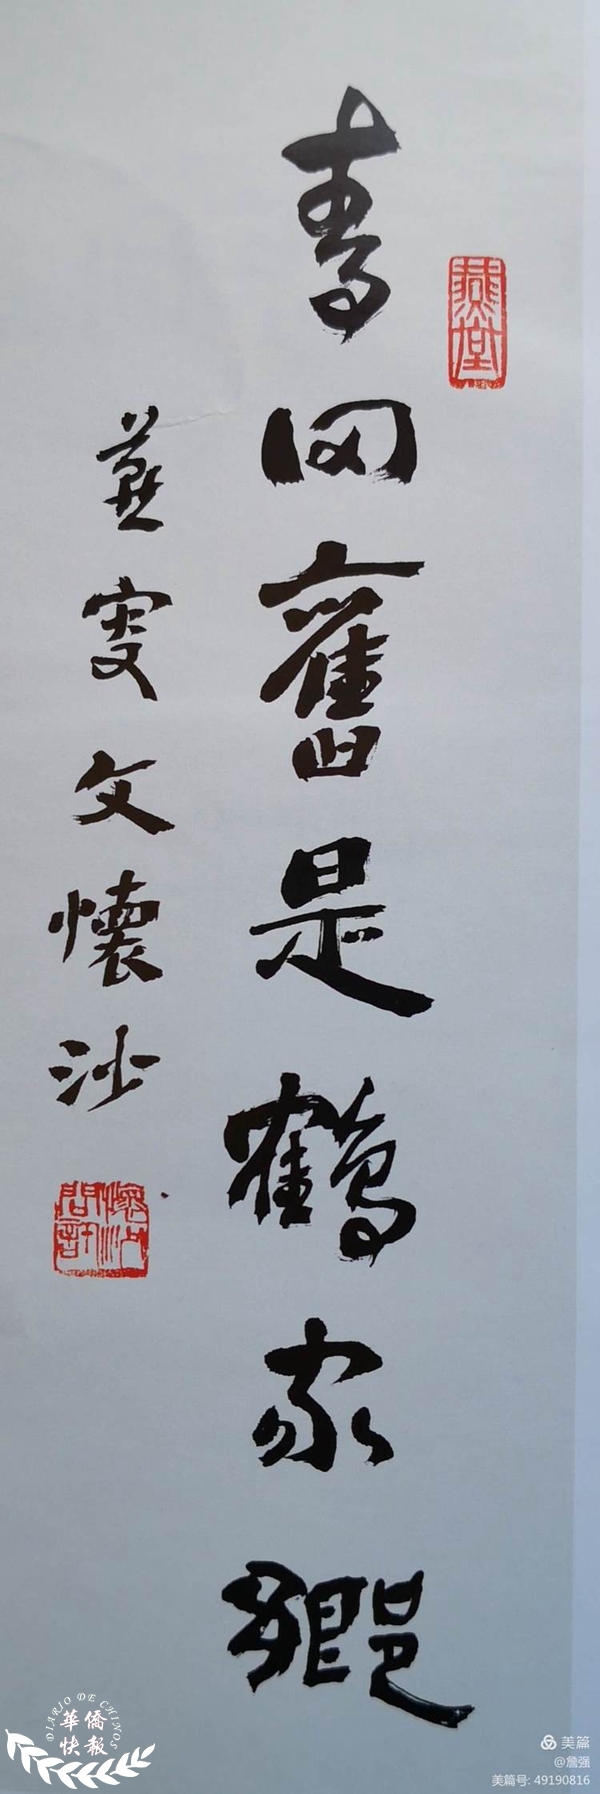 燕堂
青田舊是鶴家鄉
燕叟文懷沙
懷沙問訊
DIARIO DE CHINOS
華僑
快報
美篇
@詹强
美篇号: 49190816